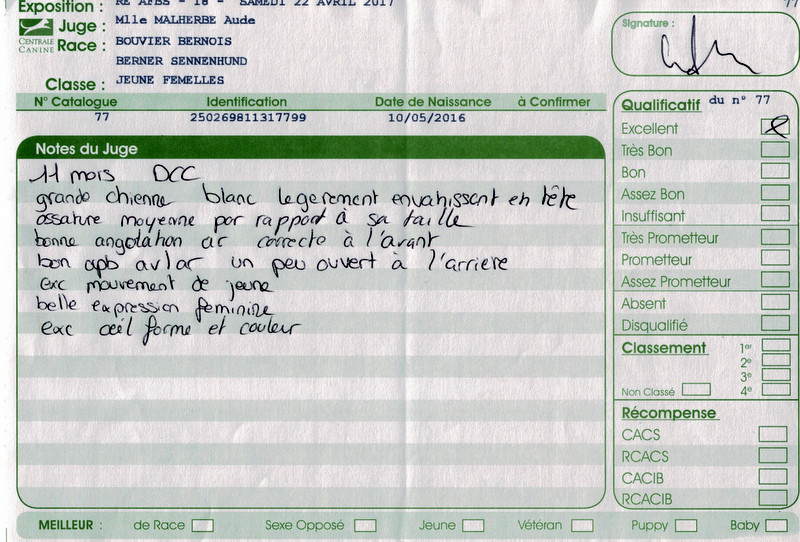 Exposition : RE AFBS - 18 - SAMEDI 22 AVRIL 2017
77
CENTRALE CANINE
Juge : Mlle MALHERBE Aude
Race : BOUVIER BERNOIS
BERNER SENNENHUND
Classe : JEUNE FEMELLES
Signature :
N° Catalogue Identification Date de Naissance à Confirmer
77 250269811317799 10/05/2016
Notes du Juge
11 mois DCC
grande chienne blanc legerement envahissant en tête
ossature moyenne par rapport à sa taille
bonne angolation ar correcte à l'avant
bon apb av/ar un peu ouvert à l'arriere
exc mouvement de jeune
belle expression feminine
exc œil forme et couleur
Qualificatif du n° 77
Excellent
Très Bon
Bon
Assez Bon
Insuffisant
Très Prometteur
Prometteur
Assez Prometteur
Absent
Disqualifié
Classement 1er
2e
3e
Non Classé 4e
Récompense
CACS
RCACS
CACIB
RCACIB
MEILLEUR : de Race Sexe Opposé Jeune Vétéran Puppy Baby